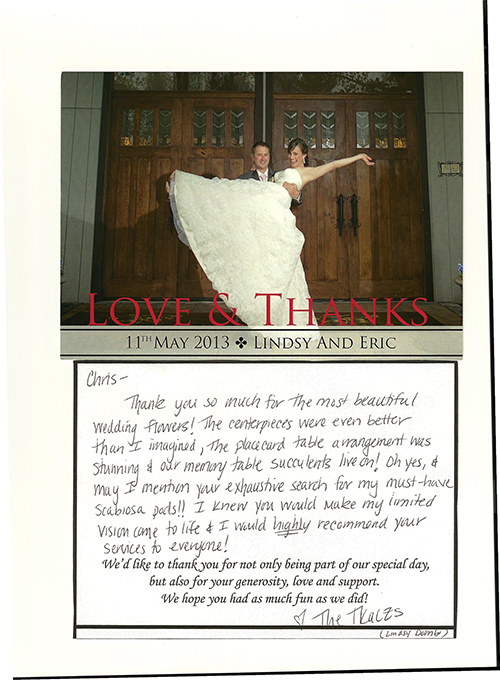 LOVE & THANKS
11TH MAY 2013 ✤ LINDSY AND ERIC
Chris-
Thank you so much for the most beautiful
wedding flowers! The centerpieces were even better
than I imagined, The placecard table arrangement was
stunning & our memory table succulents live on! Oh yes, &
may I mention your exhaustive search for my must-have
scabiosa pods!! I knew you would make my limited
vision come to life & I would highly recommend your
services to everyone!
We'd like to thank you for not only being part of our special day,
but also for your generosity, love and support.
We hope you had as much fun as we did!
♡ The Tkalzs
(Lindsy